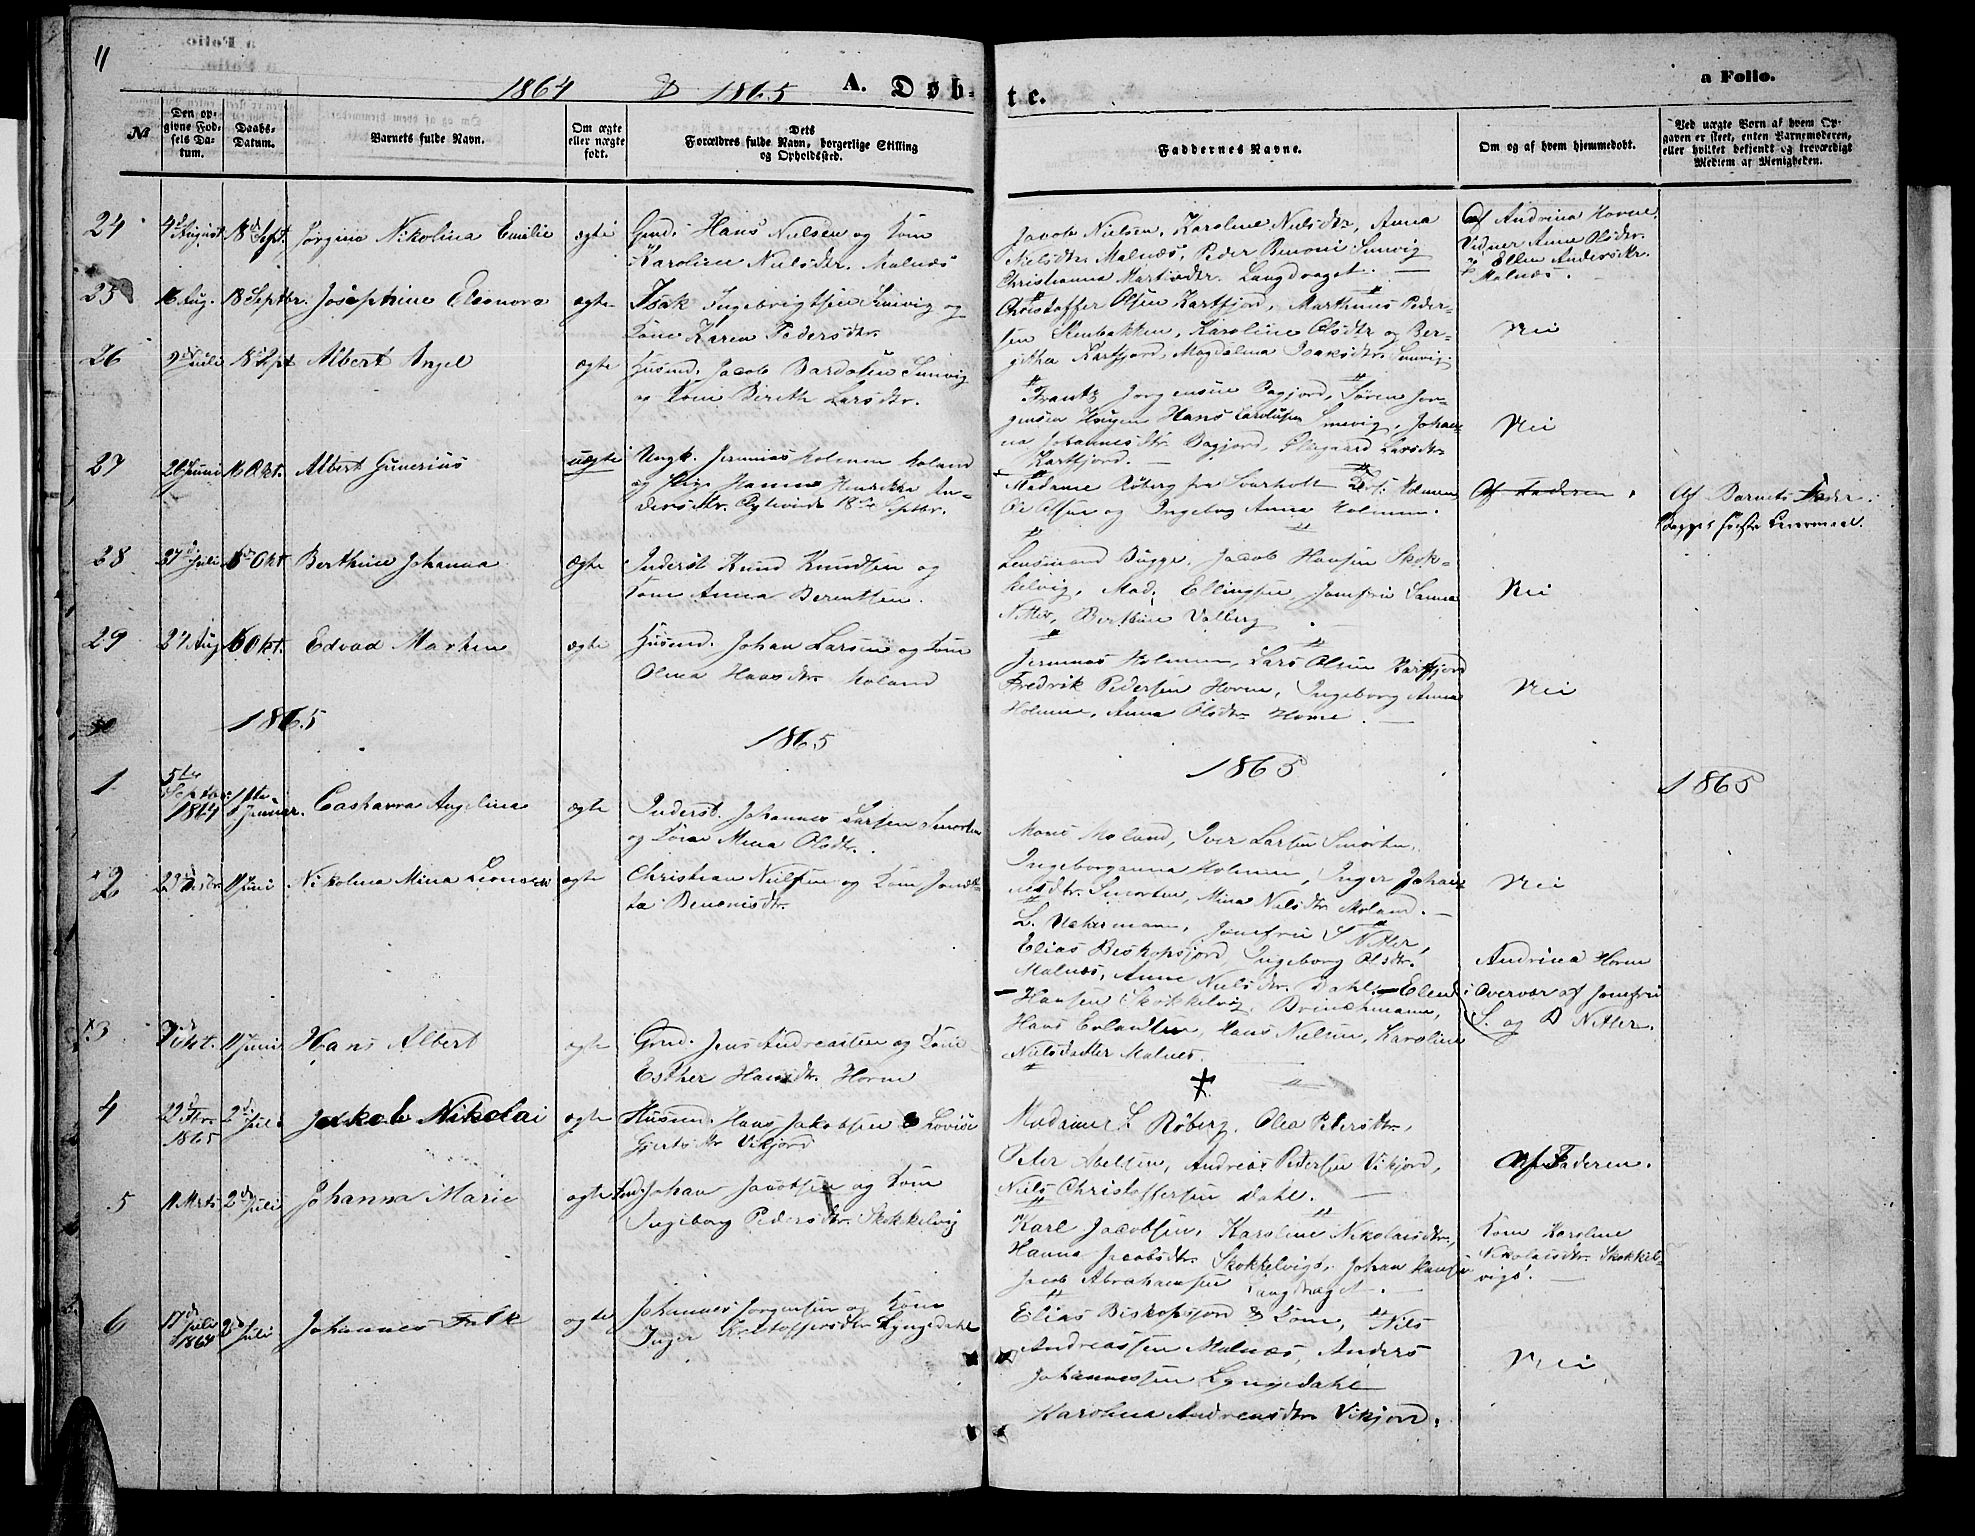 11
1864 & 1865 A. Døb-
te.
a Folio.
№
Den op-
givne Fød-
sels Da-
tum.
Daabs-
Datum.
Barnets fulde Navn.
Om ægte
eller uægte
født.
Dets
Forældres fulde Navn, borgerlige Stilling
og Opholdssted.
Faddernes Navne.
Om og af hvem hjemmedøbt.
Ved uægte Børn af hvem Op-
gaven er skeet, enten Barnemoderen,
eller hvilket bekjendt og troværdigt
Medlem af Menigheden.
24 4d August 18d Sept. Jørgine Nikolina Emilie ægte Grnd. Hans Nielsen og Kone
Karoline Nielsdtr. Malnæs
Jacob Nielsen, Karoline Nielsdtr, Anna
Nielsdtr. Malnæs, Peder Benoni Sunvig
Christianna Martinsdtr. Langdraget.
Af Andrina Horne.
Vidner Anne Olsdtr.
Ellen Andersdtr.
Malnæs.
25 16 Aug. 18 Septbr. Josephine Eleonora ægte Isak Ingebrigtsen Sunvig og
Kone Karen Pedersdtr.
Christoffer Olsen Kartfjord, Marthinus Peder-
sen Stenbakken, Karoline Olsdtr og Ber-
githa Kartfjord, Magdalena Isaksdtr. Sunvig.
Nei
26 9de Juli 18 Spt Albert Angel ægte Husmd. Jacob Bardosen Sunvig
og Kone Bereth Larsdtr.
Frantz Jørgensen Bogjord, Søren Jør-
gensen Haugen, Hans Sunvig, Johan-
na Johannesdtr. Bogjord, Larsdtr
Kartfjord.
Nei
27 26 Juni 16 Okt. Albert Gunerius uægte Ungk. Jeremias Holmen Moland
og Pige Hanna Henrikke An-
dersdtr. 18 Septbr.
Madame Røberg fra Svarholt Holmen
Ole Olsen og Ingeborg Anna Holmen.
Af Faderen.
Af Barnets Fader.
Begges første Leiermaal.
28 31d Juli 16d Okt Berthine Johanna ægte Inderst Knud Knudsen og
Kone Anna Berentsen.
Lensmand Bugge, Jacob Hansen Skok-
kelvig, Mad. Ellingsen, Jomfru Sanna
Nitter, Berthine Valberg.
Nei
29 27 Aug 16 Okt. Edvad Martin ægte Husmd. Johan Larsen og Kone
Olena Hansdtr. Moland
Jeremias Holmen, Lars Olsen Kartfjord
Fredrik Pedersen Horne, Ingeborg Anna
Holmen, Anna Olsdtr. Horne.
Nei
30 1865 1865 1865 1865
1 5te Septbr. 1864 1ste Januar. Casharra Angelina ægte Inderst. Johannes Larsen Smorten
og Kone Mina Olsdtr.
Mons Moland, Iver Larsen Smorten,
Ingeborganna Holmen, Inger Johan-
nesdtr. Smorten, Mina Nielsdtr Moland.
2 23d 11 Juni Nikolina Mina Leonora ægte Christian Nielsen og Kone
Benonisdtr.
Nei
L. Uchermann, Jomfru S Nitter,
Elias Biskopsjord, Ingeborg Olsdtr.
Malnæs, Anne Nielsdtr Dahl. – Elen
Hansen Skokkelvig, Brinchmann,
Hans Erlandsen, Hans Nielsen, Karoline
Nielsdatter Malnes.
Andrina Horne
Overvær af Jomfru
S. og D Nitter.
3 3d Okt. 11 Juni Hans Albert ægte Grnd. Jens Andreassen og Kone
Esther Hansdtr. Horne
4 22d Fbr. 1865 2d Juli Jakob Nikolai ægte Husmd. Hans Jakobsen & Lovise
Gjertsdtr Vikjord
Madame L Røberg, Olea Petersdtr.,
Peter Abelsen, Andreas Pedersen Vikjord,
Niels Christoffersen Dahl.
Af Faderen.
5 11 Mrts 2d Juli Johanna Marie ægte Ind. Johan Jacobsen og Kone
Ingeborg Pedersdtr. Skokkelvig
Karl Jacobsen, Karoline Nikolaisdtr.,
Hanna Jacobsdtr. Skokkelvigs, Johan Hansen
Jacob Abrahamsen Langdraget.
Kone Karoline
Nikolaisdtr. Skokkel-
vigs.
6 17d Juli 1864 2d Juli Johannes Falk ægte Johannes Jørgensen og Kone
Inger Kristoffersdtr Lyngedahl
Elias Biskopsjord & Kone, Nils
Andreassen Malnæs, Anders
Johannessen Lyngedahl
Karolina Andreasdtr Vikjord.
Nei